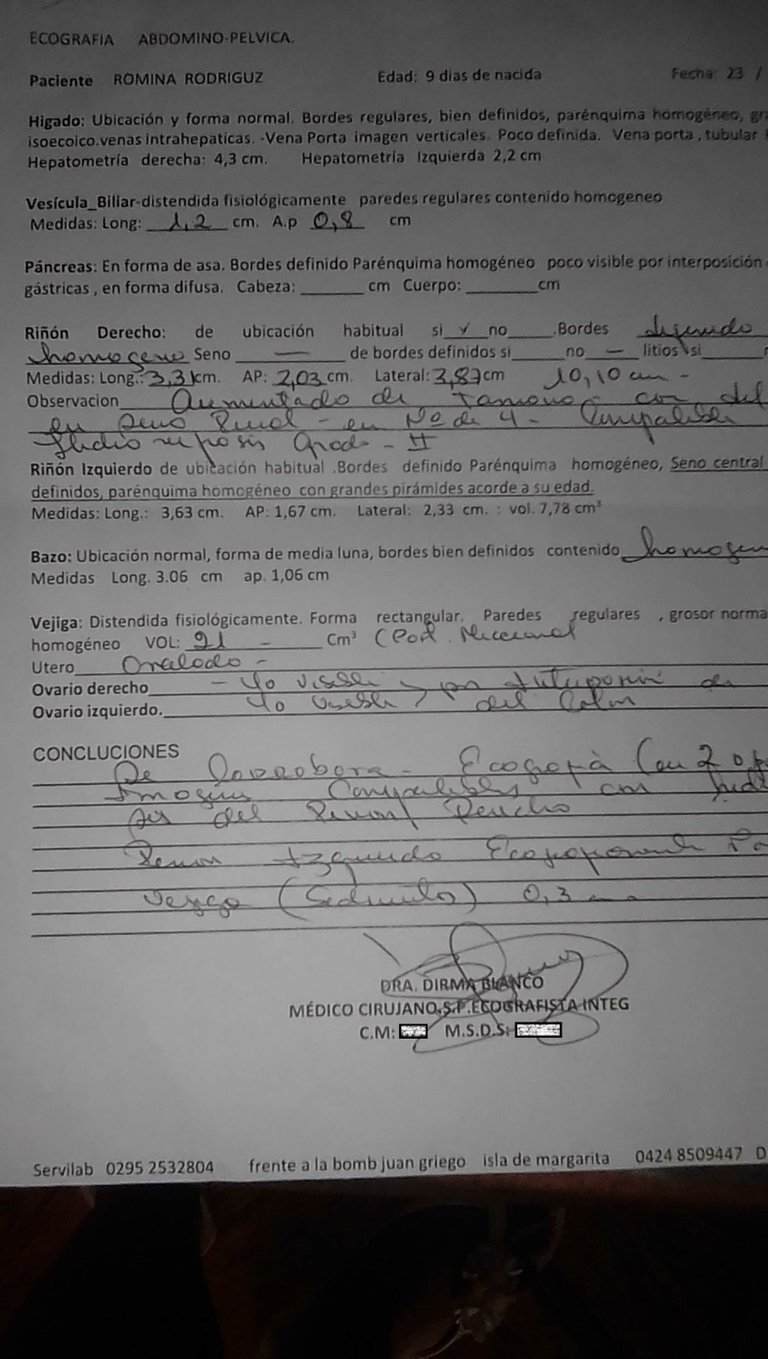 ECOGRAFIA ABDOMINO-PELVICA.
Paciente ROMINA RODRIGUZ Edad: 9 dias de nacida Fecha: 23 /
Higado: Ubicación y forma normal. Bordes regulares, bien definidos, parénquima homogéneo,
isoecoico.venas intrahepaticas. -Vena Porta imagen verticales. Poco definida. Vena porta , tubular
Hepatometría derecha: 4,3 cm. Hepatometría Izquierda 2,2 cm
Vesícula_Biliar-distendida fisiológicamente paredes regulares contenido homogeneo
Medidas: Long: 1,2 cm. A.p 0,8 cm
Páncreas: En forma de asa. Bordes definido Parénquima homogéneo poco visible por interposición
gástricas , en forma difusa. Cabeza: ______ cm Cuerpo: ______cm
Riñón Derecho: de ubicación habitual si no .Bordes
homogeno Seno — de bordes definidos si no — litios si
Medidas: Long.: 3,3 cm. AP: 2,03 cm. Lateral: 3,87 cm 10,10 cm -
Observacion Aumentado de Tamono con
en Seno Renal - en Nº de 4 -
Grado - II
Riñón Izquierdo de ubicación habitual .Bordes definido Parénquima homogéneo, Seno central
definidos, parénquima homogéneo con grandes pirámides acorde a su edad.
Medidas: Long.: 3,63 cm. AP: 1,67 cm. Lateral: 2,33 cm. : vol. 7,78 cm³
Bazo: Ubicación normal, forma de media luna, bordes bien definidos contenido
Medidas Long. 3.06 cm ap. 1,06 cm
Vejiga: Distendida fisiológicamente. Forma rectangular. Paredes regulares , grosor
homogéneo VOL: 21 - Cm³ (Post
Utero
Ovario derecho - No visible
Ovario izquierdo. No visible del Colon
CONCLUCIONES
De Corrobora - Ecografia
Imagen Compatibles con
del Renon Derecho
Renon Izquierdo
Vejiga (Sedimento) 0,3
DRA. DIRMA BLANCO
MÉDICO CIRUJANO.S.P.ECOGRAFISTA INTEG
C.M: M.S.D.S:
Servilab 0295 2532804 frente a la bomb juan griego isla de margarita 0424 8509447 D